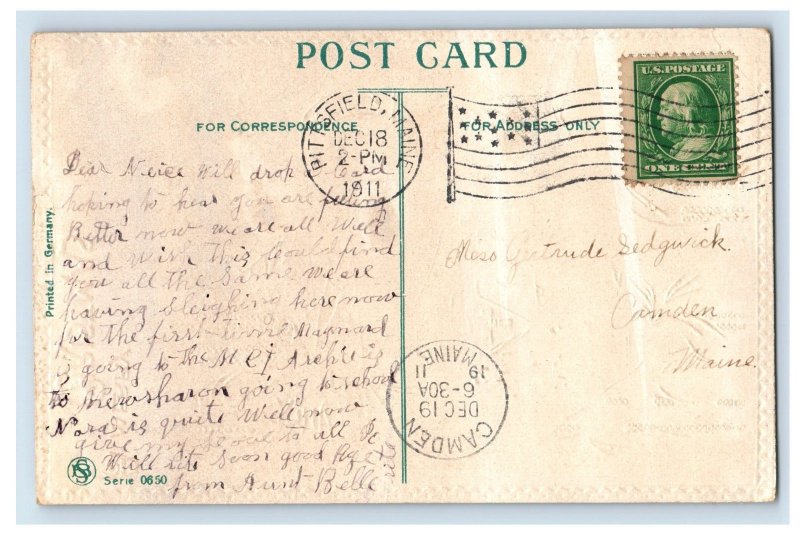 POST CARD
FOR CORRESPONDENCE
FOR ADDRESS ONLY
PITTSFIELD, MAINE
DEC 18
2-PM
1911
U.S. POSTAGE
ONE CENT
Dear Neice Will drop a Card
hoping to hear you are feeling
Better now we are all Well
and Wish this Could find
you all the Same we are
having Sleighing here now
for the first time Maynard
is going to the M C I Archie is
to New sharon going to school
Nora is quite Well now
give my Love to all
Will
Soon good Bye
from Aunt Belle
Printed in Germany.
Serie 0650
Miss Gertrude Sedgwick.
Camden
Maine.
CAMDEN
DEC 19
6-30A
19 11
MAINE